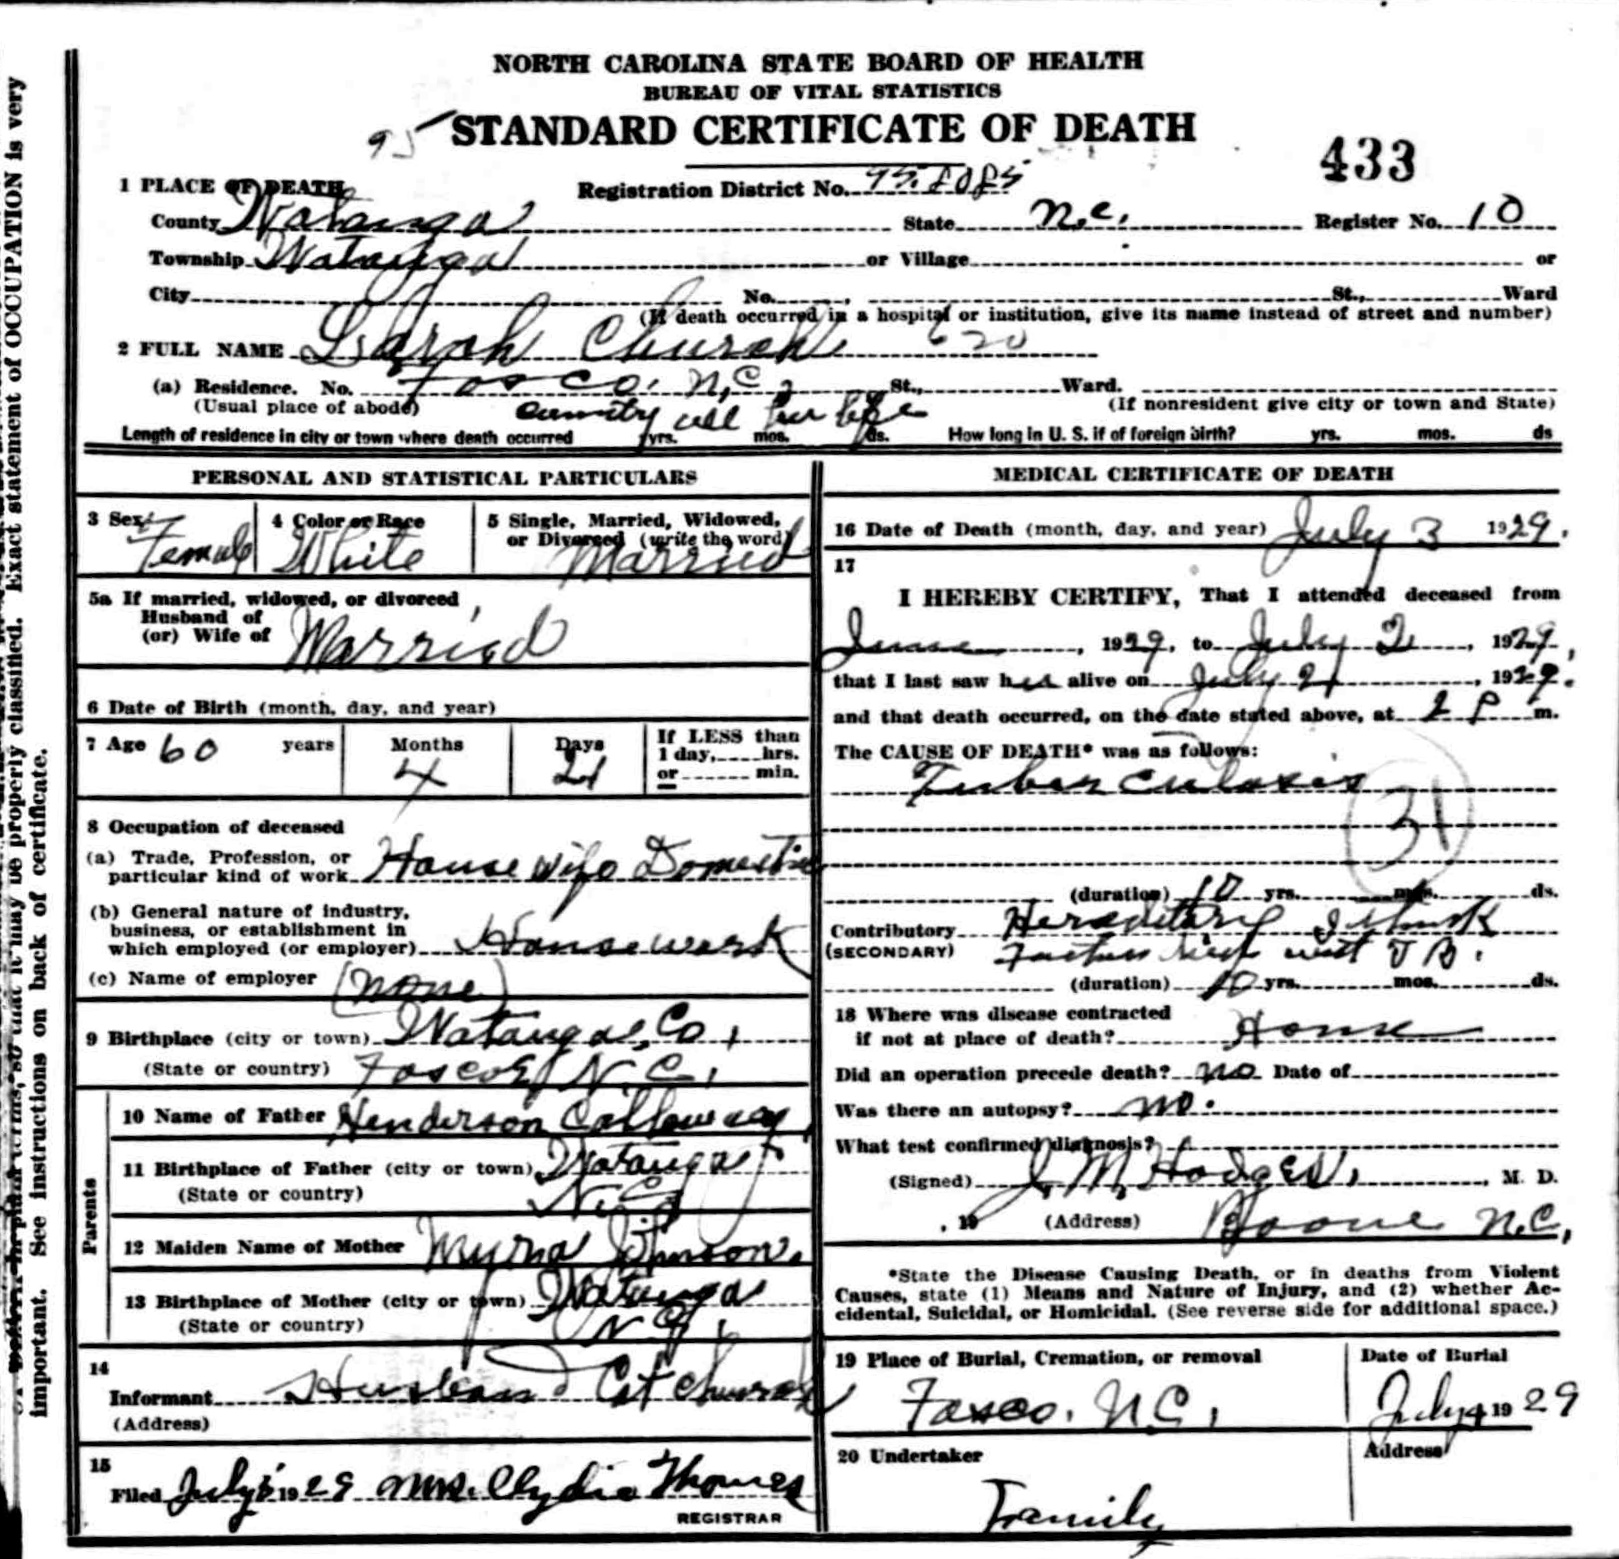 NORTH CAROLINA STATE BOARD OF HEALTH
BUREAU OF VITAL STATISTICS
95 STANDARD CERTIFICATE OF DEATH
433
1 PLACE OF DEATH
Registration District No.
County Watauga State N.C. Register No. 10
Township Watauga or Village or
City No. , St., Ward
(If death occurred in a hospital or institution, give its name instead of street and number)
2 FULL NAME Sarah Church 620
(a) Residence. No. Fosco. N,C, St., Ward.
(Usual place of abode) (If nonresident give city or town and State)
country all her life
Length of residence in city or town where death occurred yrs. mos. ds. How long in U. S. if of foreign birth? yrs. mos. ds
PERSONAL AND STATISTICAL PARTICULARS
3 Sex Female
4 Color or Race White
5 Single, Married, Widowed, or Divorced (write the word) Married
5a If married, widowed, or divorced
Husband of
(or) Wife of Married
6 Date of Birth (month, day, and year)
7 Age 60 years Months 4 Days 21 If LESS than 1 day, hrs. or min.
8 Occupation of deceased
(a) Trade, Profession, or
particular kind of work House wife Domestic
(b) General nature of industry,
business, or establishment in
which employed (or employer) House work
(c) Name of employer (none)
9 Birthplace (city or town) Watauga, Co,
(State or country) Foscoe N.C.
Parents
10 Name of Father Henderson Calloway
11 Birthplace of Father (city or town) Watauga
(State or country) N.C.
12 Maiden Name of Mother Myrna Johnson.
13 Birthplace of Mother (city or town) Watauga
(State or country) N.C.
14
Informant Husband Cat Church
(Address)
15
Filed July 1929 Mrs. Clydie Thomas
REGISTRAR
MEDICAL CERTIFICATE OF DEATH
16 Date of Death (month, day, and year) July 3 1929.
17
I HEREBY CERTIFY, That I attended deceased from
June , 1929, to July 2 , 1929,
that I last saw her alive on July 2 , 1929.
and that death occurred, on the date stated above, at 2 P m.
The CAUSE OF DEATH* was as follows:
Tuberculosis
31
(duration) 10 yrs. mos. ds.
Contributory Hereditary I think
(SECONDARY) Father died with T B.
(duration) 10 yrs. mos. ds.
18 Where was disease contracted
if not at place of death? Home
Did an operation precede death? no Date of
Was there an autopsy? no.
What test confirmed diagnosis?
(Signed) J. M. Hodges, , M. D.
, 19 (Address) Boone N.C,
*State the Disease Causing Death, or in deaths from Violent
Causes, state (1) Means and Nature of Injury, and (2) whether Ac-
cidental, Suicidal, or Homicidal. (See reverse side for additional space.)
19 Place of Burial, Cremation, or removal
Fosco. N.C,
Date of Burial
July 4 1929
20 Undertaker
Family
Address
important. See instructions on back of certificate.
may be properly classified. Exact statement of OCCUPATION is very